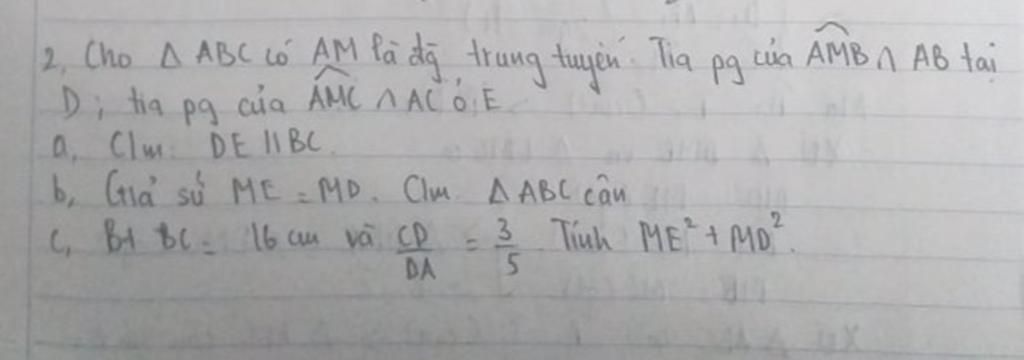 2, Cho △ ABC có AM là đg trung tuyến. Tia pg của AMB ∩ AB tại
D; tia pg của AMC ∩ AC ở E
a, C/m: DE // BC.
b, Giả sử ME = MD. C/m △ ABC cân
c, Bt BC = 16 cm và CD/DA = 3/5 Tính ME² + MD².